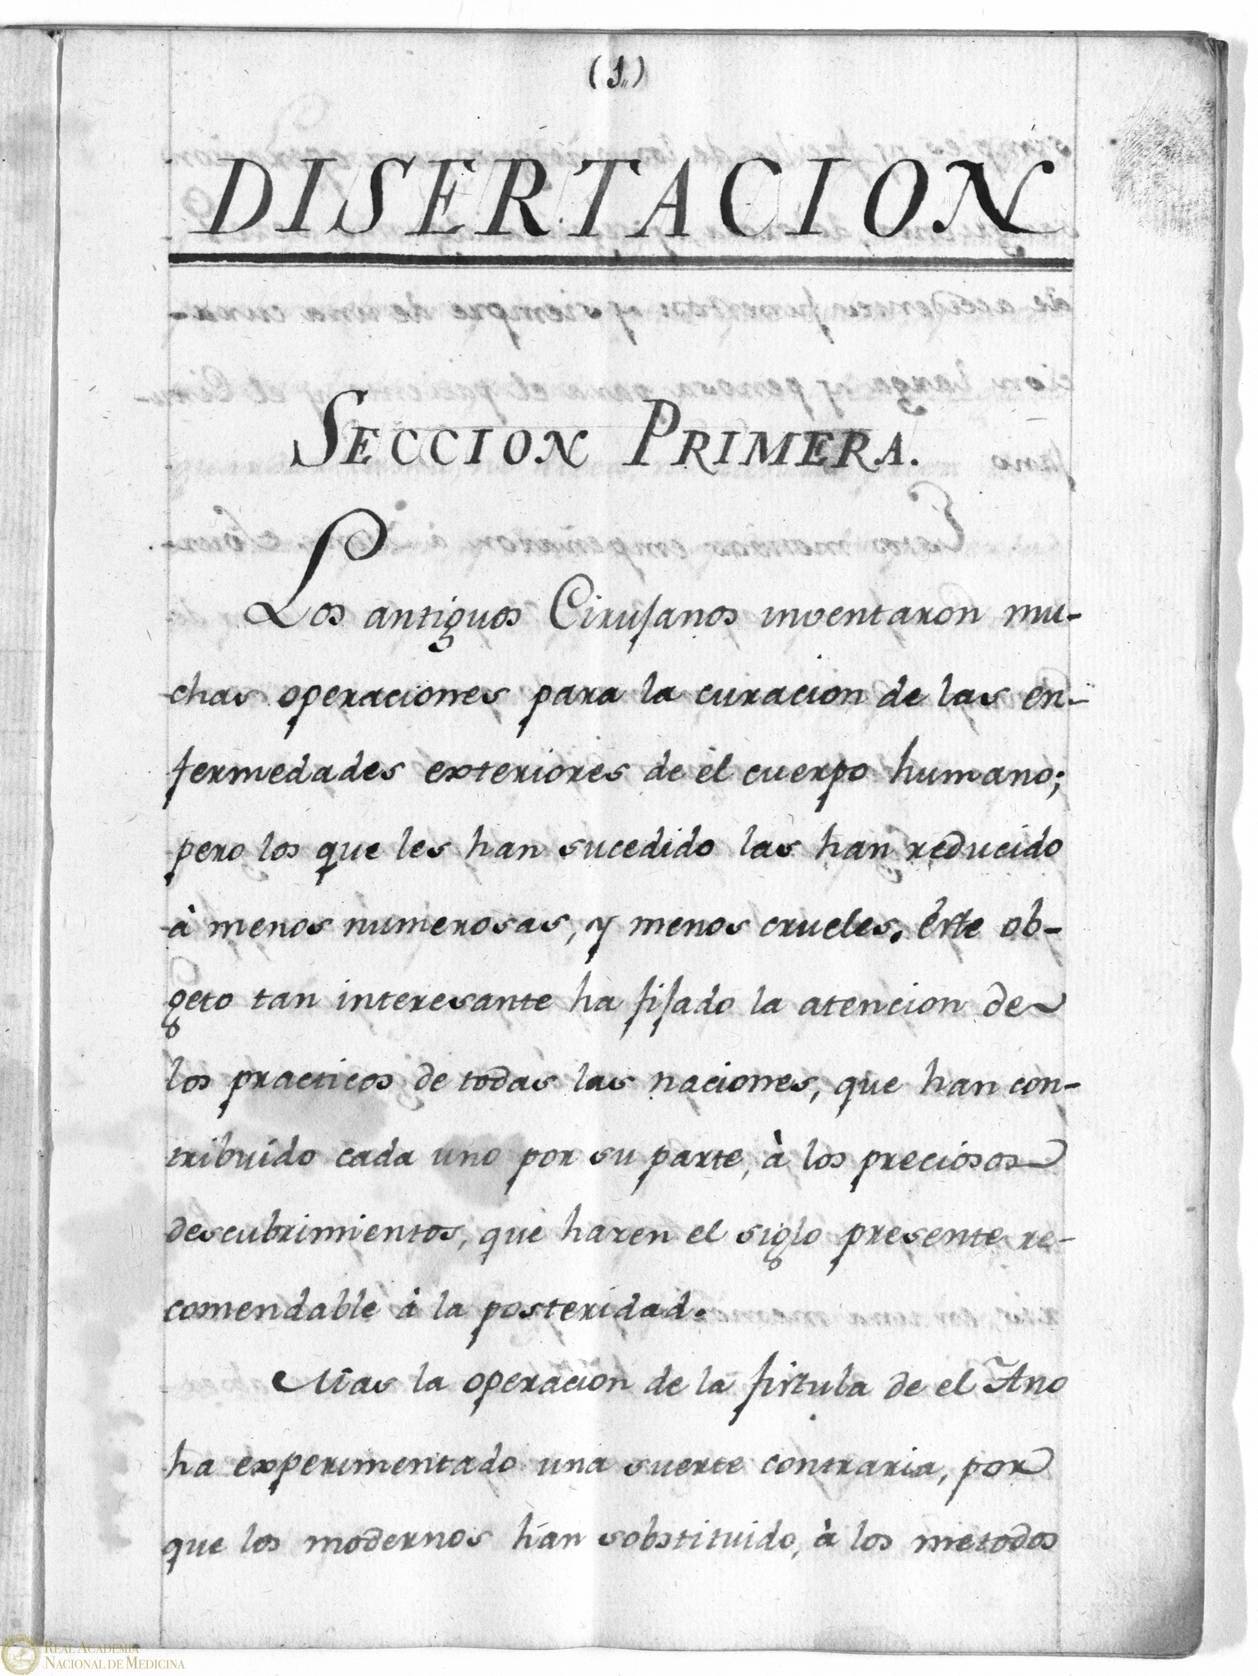 (1.)
DISERTACION
SECCION PRIMERA.
Los antiguos Cirujanos inventaron mu-
chas operaciones para la curacion de las en-
fermedades exteriores de el cuerpo humano;
pero los que les han sucedido las han reducido
à menos numerosas, y menos crueles. Este ob-
geto tan interesante ha fijado la atencion de
los practicos de todas las naciones, que han con-
tribuido cada uno por su parte, à los preciosos
descubrimientos, que haren el siglo presente re-
comendable à la posteridad.
Mas la operacion de la fistula de el Ano
ha experimentado una suerte contraria, por
que los modernos han sobstituido, à los metodos
REAL ACADEMIA
NACIONAL DE MEDICINA